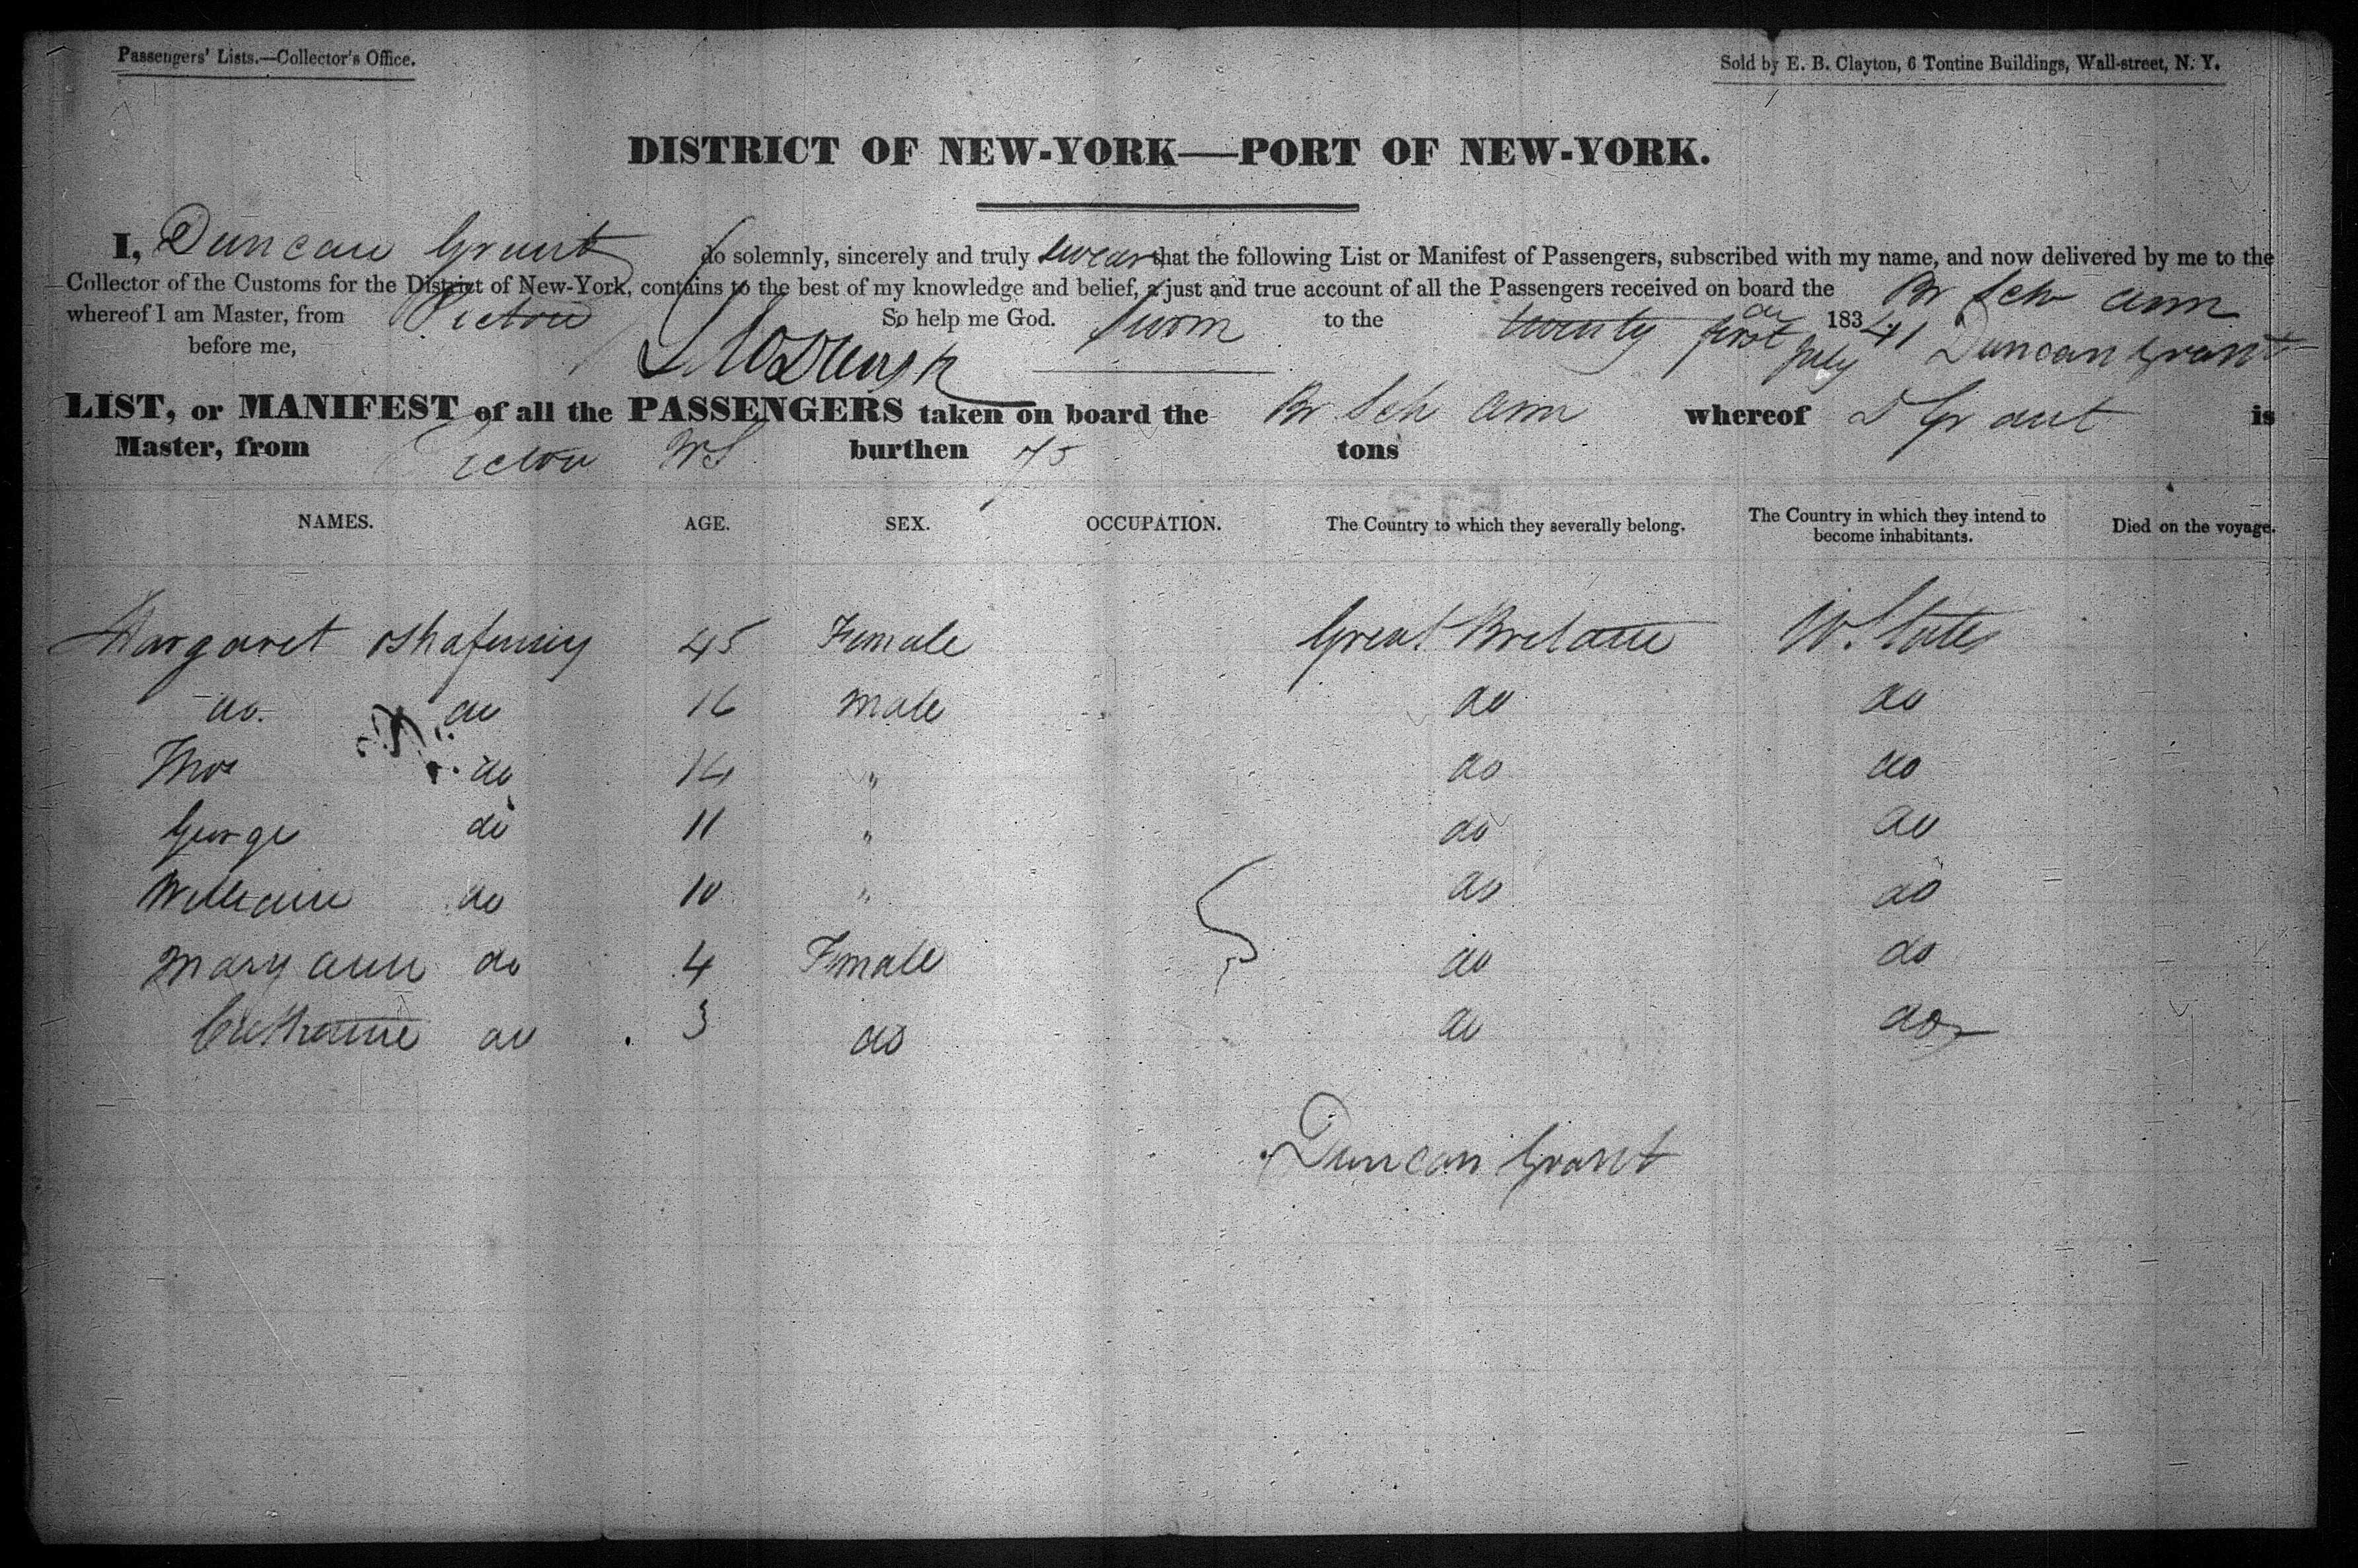 Passengers' Lists.—Collector's Office.
Sold by E. B. Clayton, 6 Tontine Buildings, Wall-street, N. Y.
DISTRICT OF NEW-YORK—PORT OF NEW-YORK.
I, Duncan Grant do solemnly, sincerely and truly swear that the following List or Manifest of Passengers, subscribed with my name, and now delivered by me to the
Collector of the Customs for the District of New-York, contains to the best of my knowledge and belief, a just and true account of all the Passengers received on board the Br Sch Ann
whereof I am Master, from Pictou So help me God. Sworn to the twenty first July 1841 Duncan Grant
before me,
LIST, or MANIFEST of all the PASSENGERS taken on board the Br Sch Ann whereof D Grant is
Master, from Pictou NS burthen 75 tons
NAMES. AGE. SEX. OCCUPATION. The Country to which they severally belong. The Country in which they intend to become inhabitants. Died on the voyage.
Margaret 45 Female Great Britain U States
do. do 16 male do do
Thos do 14 " do do
George do 11 " do do
William do 10 " do do
Mary ann do 4 Female do do
Catharine do 3 do do do
Duncan Grant